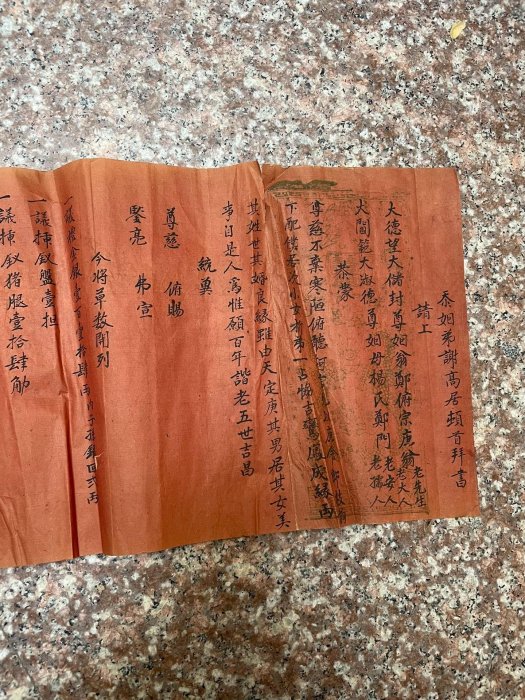 忝姻弟謝高居頓首拜書
請上
大德望大儲封尊姻翁鄭府宗庚翁老先生老大人
大閫範大淑德尊姻母楊氏鄭門老安人老孺人
恭蒙
尊慈不棄寒陋俯聽
下配僕
其姓世其婚良緣雖由天定庚其男居其女美
事自是人為惟願百年諧老五世吉昌
統奠
尊慈 俯賜
鑒亮 弗宣
今將單數開列
一議
一議插釵盤壹担
一議插釵猪腿壹拾肆觔